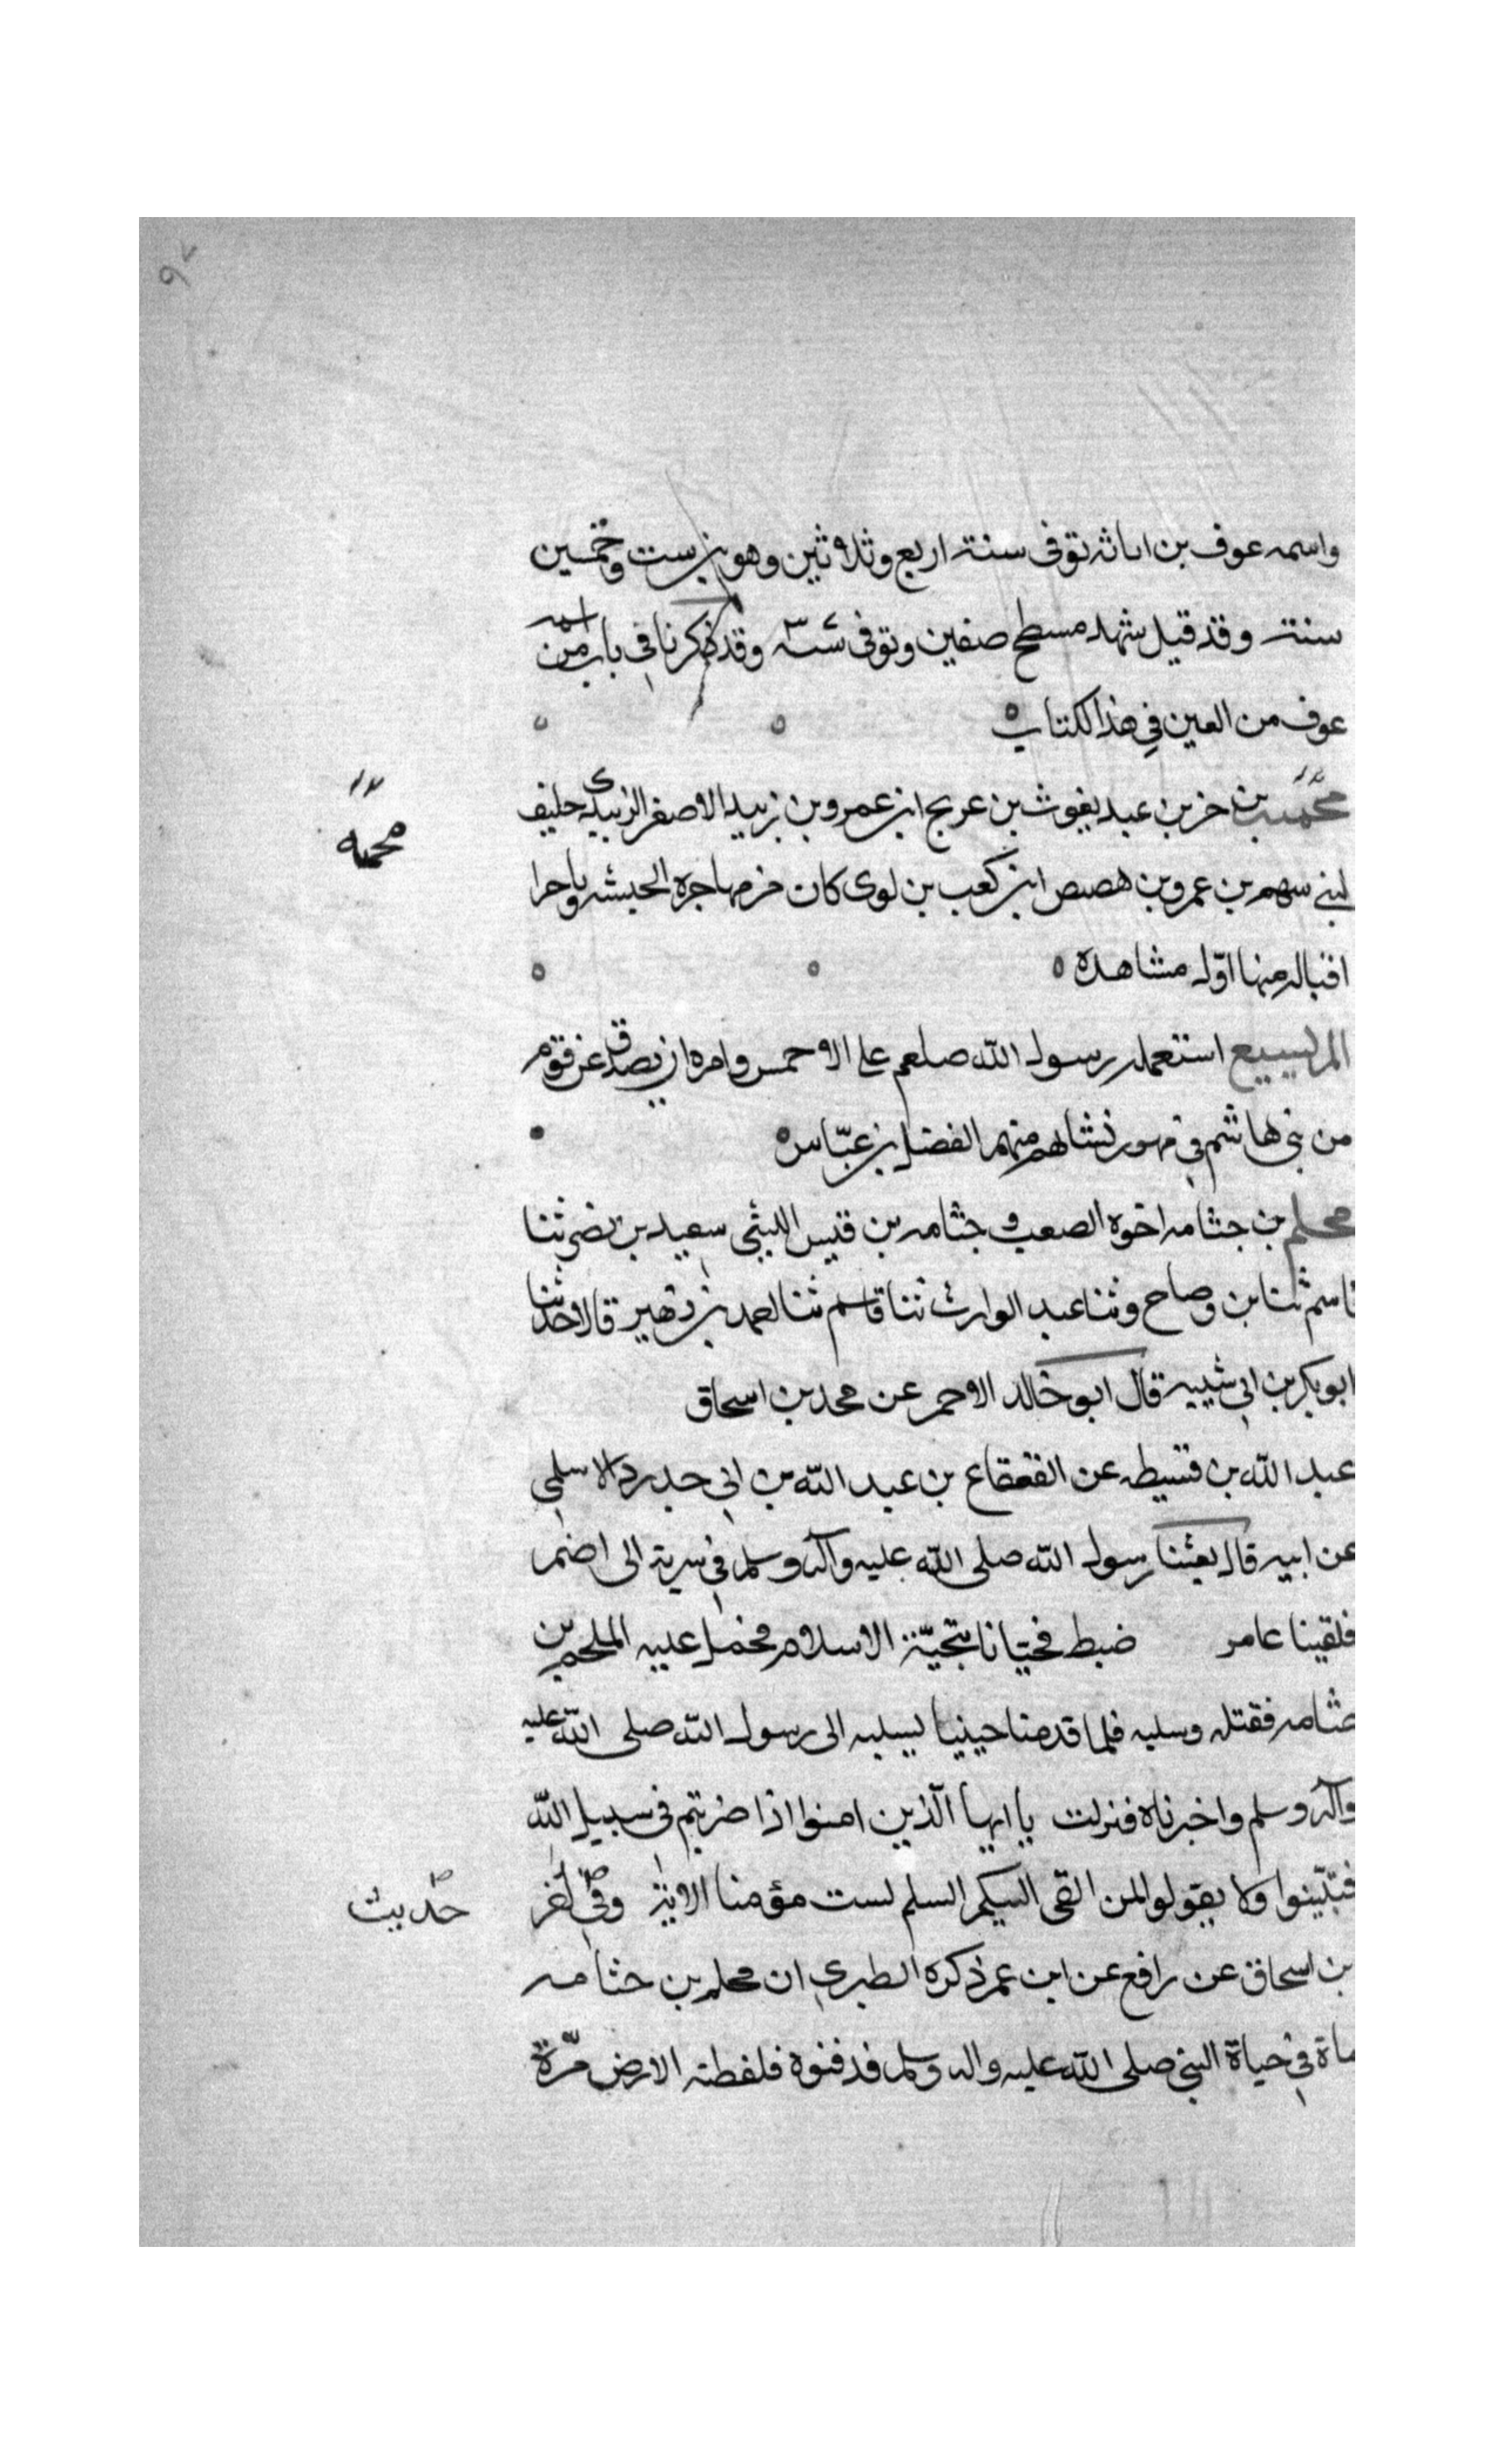 واسمه عوف بن اثاثه توفى سنة اربع وثلاثين وهو بن ست وخمسين
سنة وقد قيل شهد مسطح صفين وتوفى وقد ذكرنا فى باب من اسمه
عوف من العين في هذا لكتاب
محميه بن جز بن عبد يغوث بن عريج ابن عمرو بن زبيد الاصغر الزبيدى حليف
لبني سهم بن عمرو بن هصيص ابن كعب بن لوى كان من مهاجرة الحبشه
محميه
منها اول مشاهده
المريسيع استعمله رسول الله صلعم على الاخمس وامره ان يصدق عن قوم
من بني هاشم في مهور نسائهم منهم الفضل بن عباس
محلم بن جثامه اخوه الصعب و جثامه بن قيس الليثي سعيد بن نصر ثنا
قاسم ثنا بن وضاح وثنا عبد الوارث ثنا قاسم ثنا احمد بن زهير قالا حدثنا
ابو بكر بن ابي شيبه قال ابو خالد الاحمر عن محمد بن اسحاق
عبد الله بن قسيطه عن القعقاع بن عبد الله بن ابي حدرد الاسلمي
عن ابيه قال بعثنا رسول الله صلى الله عليه وآله وسلم في سرية الى اضم
فلقينا عامر ضبط فحيانا بتحية الاسلام فحمل عليه الملحم بن
جثامه فقتله وسلبه فلما قدمنا بسلبه الى رسول الله صلى الله عليه
وآله وسلم واخبرناه فنزلت يا ايها الذين امنوا اذا ضربتم فى سبيل الله
فتبينوا ولا يقولوا لمن القى اليكم السلم لست مؤمنا الاية وفي
حديث
بن اسحاق عن رافع عن ابن عمر ذكره الطبري ان محلم بن جثامه
ماة في حياة النبي صلى الله عليه واله وسلم فدفنوه فلفظته الارض مرة